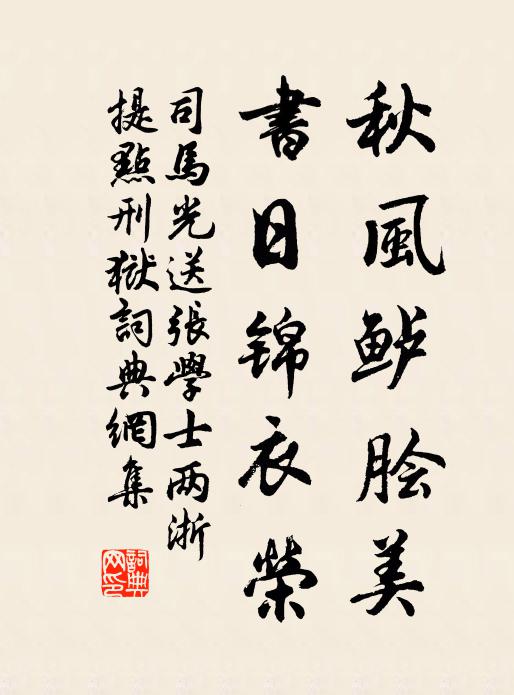 秋風鲈膾美
書日錦衣榮
司馬光送張學士两浙
提點刑獄詞典網集
詞典网印